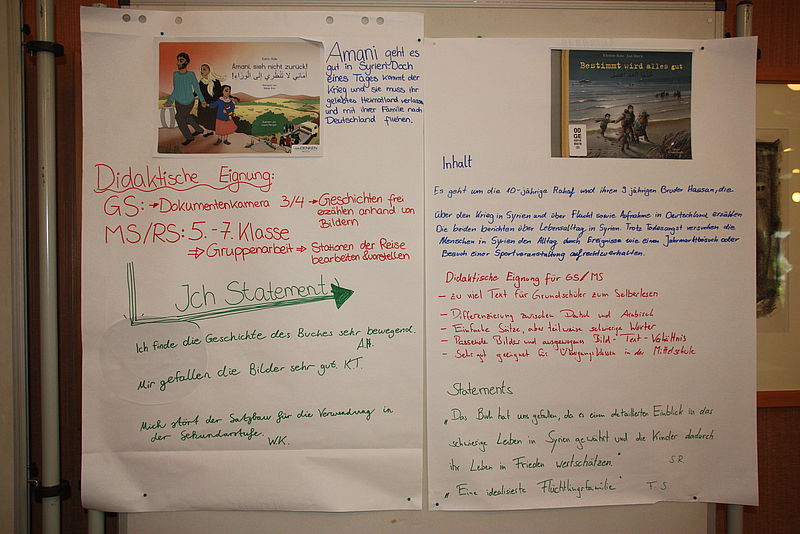 Amani, sieh nicht zurück!
أماني لا تنظري إلى الوراء!
Amani geht es
gut in Syrien. Doch
eines Tages kommt der
Krieg und sie muss ihr
geliebtes Heimatland verlassen
und mit ihrer Familie nach
Deutschland fliehen.
Didaktische Eignung:
GS: → Dokumentenkamera 3/4 → Geschichten frei
erzählen anhand von
Bildern
MS/RS: 5.-7. Klasse
⇒ Gruppenarbeit ⇒ Stationen der Reise
bearbeiten & vorstellen
Ich Statement
Ich finde die Geschichte des Buches sehr bewegend.
A.H.
Mir gefallen die Bilder sehr gut. K.T.
Mich stört der Satzbau für die Verwendung in
der Sekundarstufe.
W.K.
Bestimmt wird alles gut
Inhalt
Es geht um die 10-jährige Rahaf und ihren 9 jährigen Bruder Hassan, die
über den Krieg in Syrien und über Flucht sowie Aufnahme in Deutschland erzählen
Die beiden berichten über Lebensalltag in Syrien. Trotz Todesangst versuchen die
Menschen in Syrien den Alltag durch Ereignisse wie einem Jahrmarktbesuch oder
Besuch einer Sportveranstaltung aufrechtzuerhalten.
Didaktische Eignung für GS/MS
- zu viel Text für Grundschüler zum Selberlesen
- Differenzierung zwischen Deutsch und Arabisch
- Einfache Sätze, aber teilweise schwierige Wörter
- Passende Bilder und ausgewogenes Bild-Text-Verhältnis
- Sehr gut geeignet für Übergangsklassen in der Mittelschule
Statements
„Das Buch hat uns gefallen, da es einen detaillierten Einblick in das
schwierige Leben in Syrien gewährt und die Kinder dadurch
ihr Leben in Frieden wertschätzen."
S.R.
„Eine idealisierte Flüchtlingsfamilie" T.S